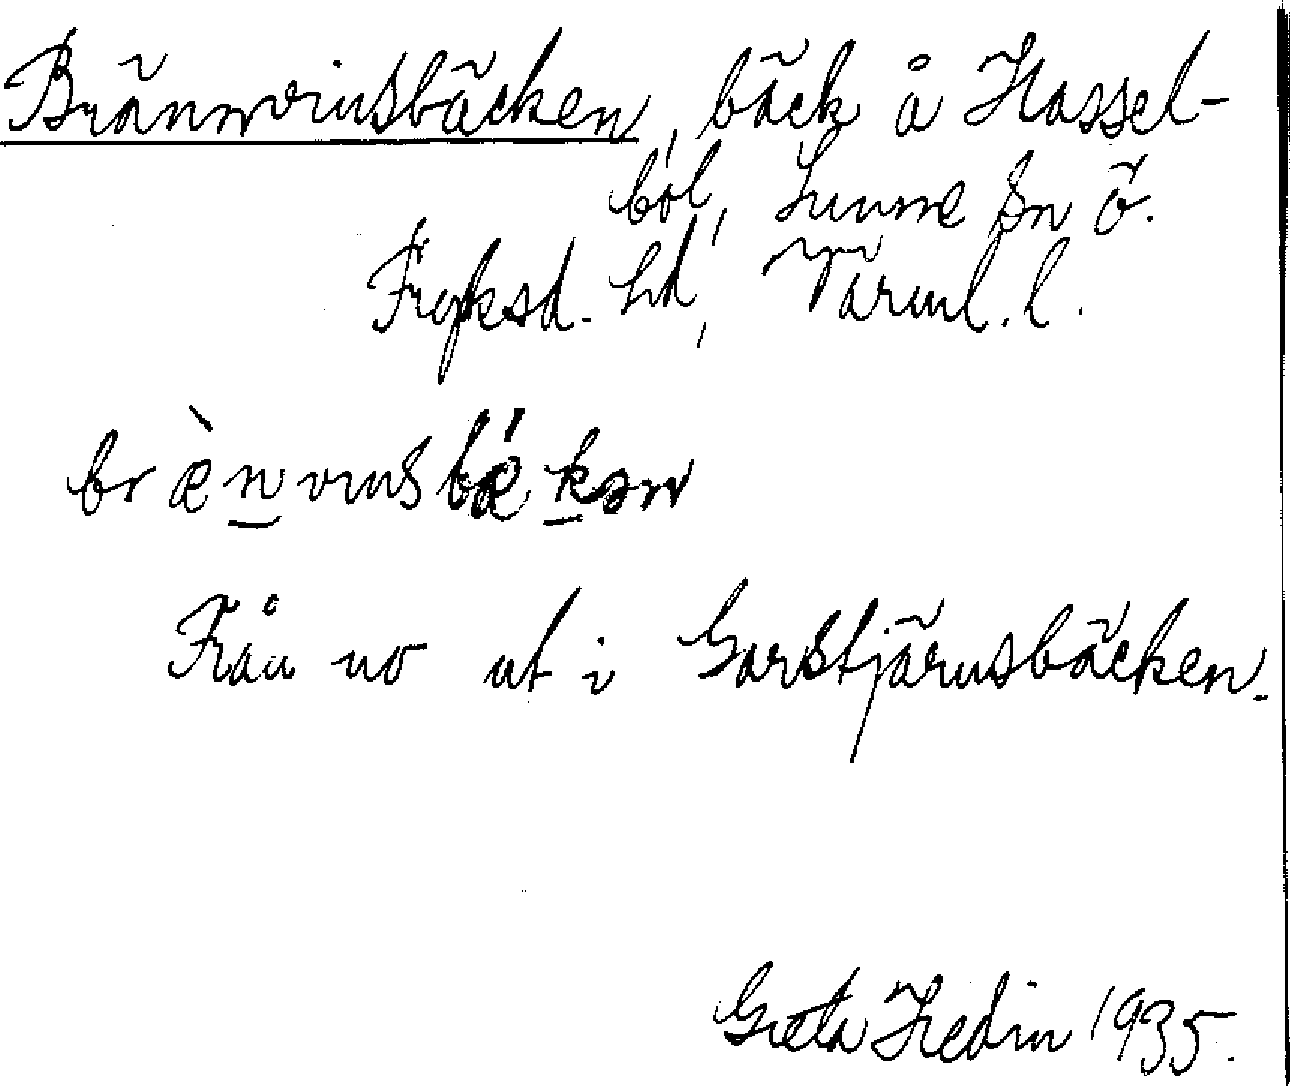 Brännvinsbäcken, bäck å Hassel-
bol, Sunne sn ö.
Fryksd. hd, Värml. l.
bræ̀n̲vinsbǽk̲ən
Från no ut i Garstjärnsbäcken.
Greta Hedin 1935.